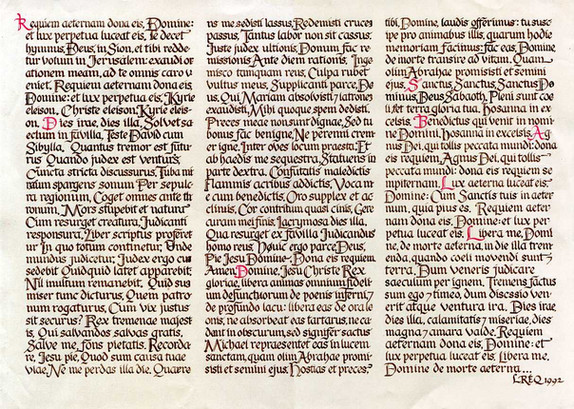 Requiem aeternam dona eis, Domine:
et lux perpetua luceat eis. Te decet
hymnus, Deus, in Sion, et tibi redde-
tur votum in Jerusalem: exaudi or
ationem meam, ad te omnis caro v
eniet. Requiem aeternam dona eis,
Domine: et lux perpetua eis. Kyrie
eleison. Christe eleison. Kyrie eleis-
on. Dies irae, dies illa, Solvet sa
eclum in favilla, Teste David cum
Sibylla. Quantus tremor est futu-
rus Quando judex est venturs,
Cuncta stricta discussurus. Tuba mi
rum spargens sonum Per sepulc
ra regionum, Coget omnes ante th
ronum. Mors stupebit et natura
Cum resurget creatura, Judicanti
responsura. Liber scriptus proferet
ur In quo totum continetur, Unde
mundus judicetur. Judex ergo cu
sedebit Quidquid latet apparebit,
Nil inultum remanebit. Quid sus
miser tunc dicturus, Quem patro
num rogaturus, Cum vix justus
sit securus? Rex tremenae majest
is, Qui salvandos salvas gratis,
Salve me, fons pietatis. Recorda
re, Jesu pie, Quod sum causa tuae
viae, Ne me perdas illa die. Quaere
ns me sedisti lassus, Redemisti cruces
passus, Tantus labor non sit cassus.
Juste judex ultionis, Donum fac re
missionis Ante diem rationis. Inge
misco tamquam reus, Culpa rubet
vultus meus, Supplicanti parce, De
us. Qui Mariam absolvisti, latrones
exaudisti, Mibi quoque spem dedisti.
Preces meae non sunt dignae, Sed tu
bonus fac benigne, Ne peremni crem
er igne. Inter oves locum praesta, Et
ab haedis me sequestra, Statuens in
parte dextra. Confutatis maledictis
Flammis acribus addictis, Voca m
e cum benedictis. Oro supplex et ac
clinis, Cor contritum quasi cinis, Gere
curam mei finis. Lacrymosa dies illa,
Qua resurget ex favilla Judicandus
homo reus. Huic ergo parce, Deus,
Pie Jesu Domine. Dona eis requiem
Amen. Domine, Jesu Christe Rex
gloriae, libera animas omnium fideli-
um defunctorum de poenis inferni, et
de profundo lacu: libera eas de ora le
onis, ne absorbeat eas tartarus, ne ca
dant in obscurum, sed signifer sactus
Michael repraesentet eas in lucem
sanctam, quam olim Abrahae promi
sisti et semini ejus. Hostias et preces
tibi, Domine, laudis offerimus: tu susc
ipe pro animabus illis, quarum hodie
memoriam facimus: fac eas, Domine,
de morte transire ad vitam. Quam
olim Abrahae promisisti et semini
ejus. Sanctus, Sanctus, Sanctus Do
minus, Deus Sabaoth, Pleni sunt coe
li, et terra gloria tua, hosanna in ex
celsis. Benedictus qui venit in nomi-
ne Domini, hosanna in excelsis. Ag
nus Dei, qui tollis peccata mundi: dona
eis requiem, Agnus Dei, qui tollis
peccata mundi: dona eis requiem se
mpiternam. Lux aeterna luceat eis,
Domine: Cum Sanctis tuis in aeter
num, quia pius es. Requiem aeter
nam dona eis, Domine: et lux per
petua luceat eis. Libera me, Domi
ne, de morte aeterna, in die illa trem
enda, quando coeli movendi sunt et
terra. Dum veneris judicare
saeculum per ignem. Tremens factus
sum ego et timeo, dum discssio ven-
erit atque ventura ira. Dies irae
dies illa, calamitatis et miseriae, dies
magna et amara valde. Requiem
aeternam dona eis, Domine: et
lux perpetua luceat eis. Libera me,
Domine de morte aeterna...
LREQ 1992